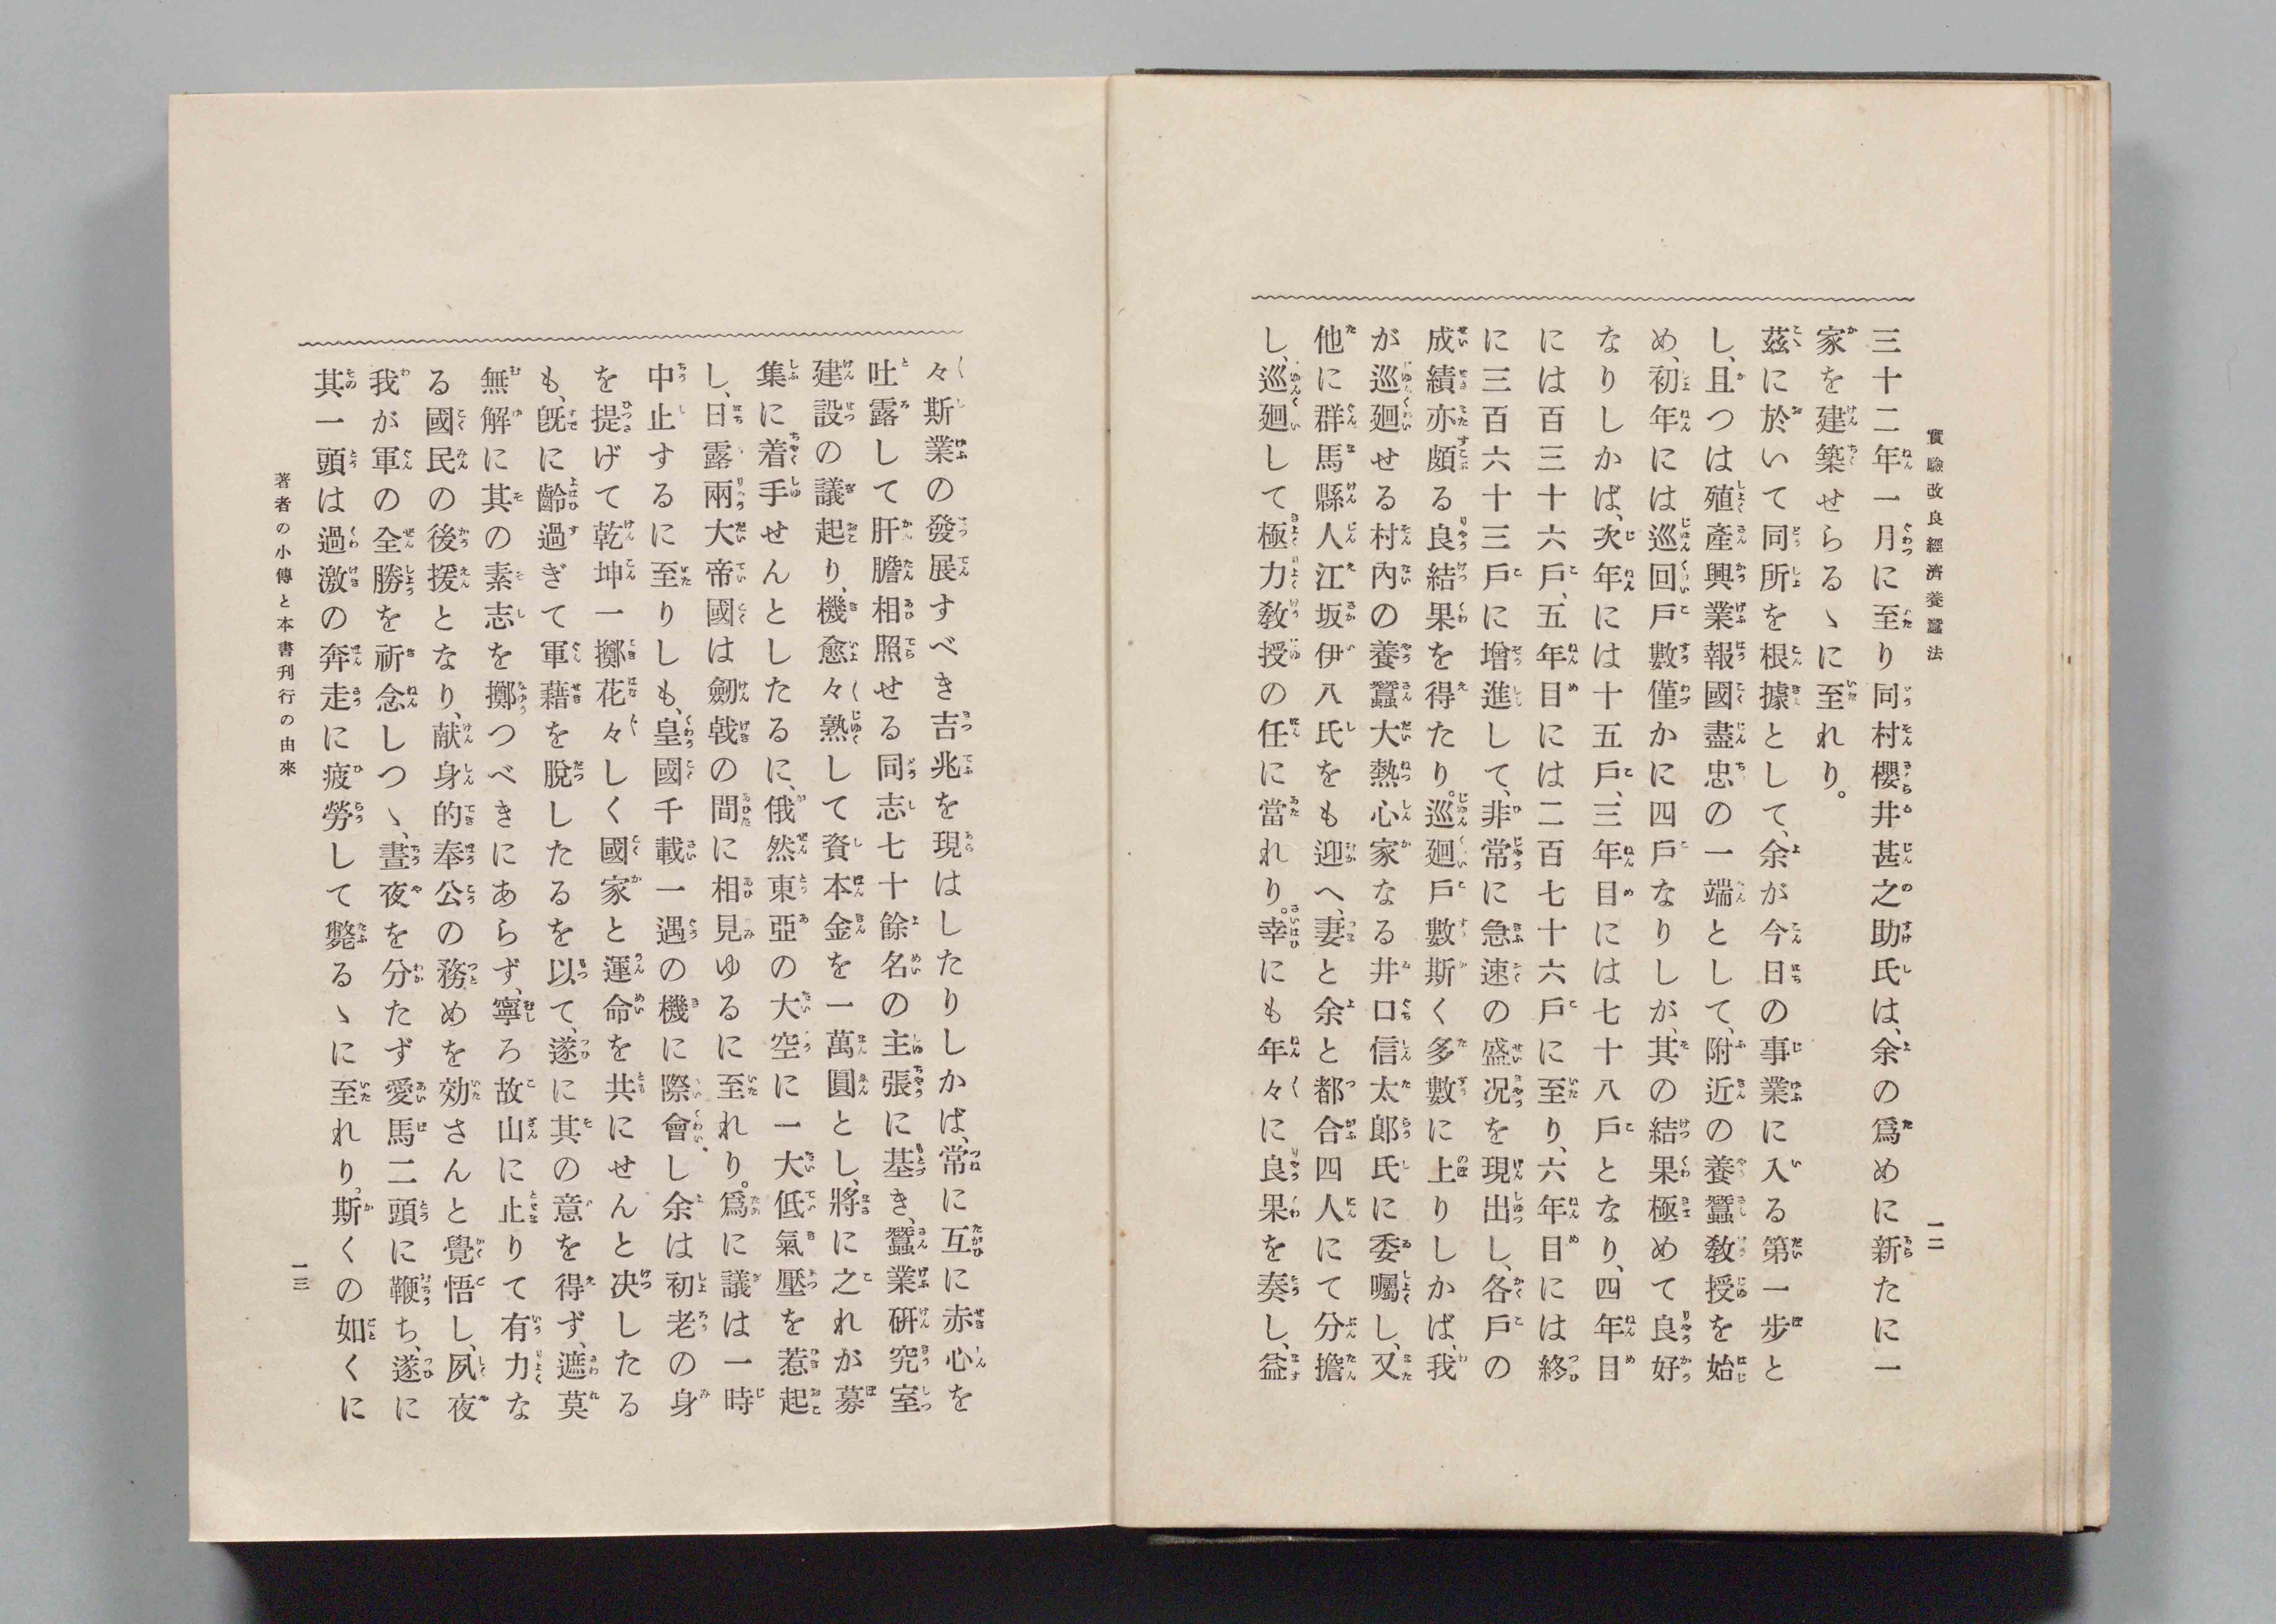 實驗改良經濟養蠶法
一二
三十二年一月に至り同村櫻井甚之助氏は、余の爲めに新たに一
家を建築せらるゝに至れり。
茲に於いて同所を根據として、余が今日の事業に入る第一步と
し、且つは殖產興業報國盡忠の一端として、附近の養蠶敎授を始
め、初年には巡回戶數僅かに四戶なりしが、其の結果極めて良好
なりしかば、次年には十五戶、三年目には七十八戶となり、四年目
には百三十六戶、五年目には二百七十六戶に至り、六年目には終
に三百六十三戶に增進して、非常に急速の盛况を現出し、各戶の
成績亦頗る良結果を得たり。巡廻戶數斯く多數に上りしかば、我
が巡廻せる村內の養蠶大熱心家なる井口信太郞氏に委囑し、又
他に群馬縣人江坂伊八氏をも迎へ、妻と余と都合四人にて分擔
し、巡廻して極力敎授の任に當れり。幸にも年々に良果を奏し、益
々斯業の發展すべき吉兆を現はしたりしかば、常に互に赤心を
吐露して肝膽相照せる同志七十餘名の主張に基き、蠶業硏究室
建設の議起り、機愈々熟して資本金を一萬圓とし、將に之れが募
集に着手せんとしたるに、俄然東亞の大空に一大低氣壓を惹起
し、日露兩大帝國は劒戟の間に相見ゆるに至れり。爲に議は一時
中止するに至りしも、皇國千載一遇の機に際會し、余は初老の身
を提げて乾坤一擲花々しく國家と運命を共にせんと决したる
も、旣に齡過ぎて軍藉を脫したるを以て、遂に其の意を得ず、遮莫
無解に其の素志を擲つべきにあらず、寧ろ故山に止りて有力な
る國民の後援となり、献身的奉公の務めを効さんと覺悟し、夙夜
我が軍の全勝を祈念しつゝ、晝夜を分たず愛馬二頭に鞭ち、遂に
其一頭は過激の奔走に疲勞して斃るゝに至れり。斯くの如くに
著者の小傳と本書刊行の由來
一三